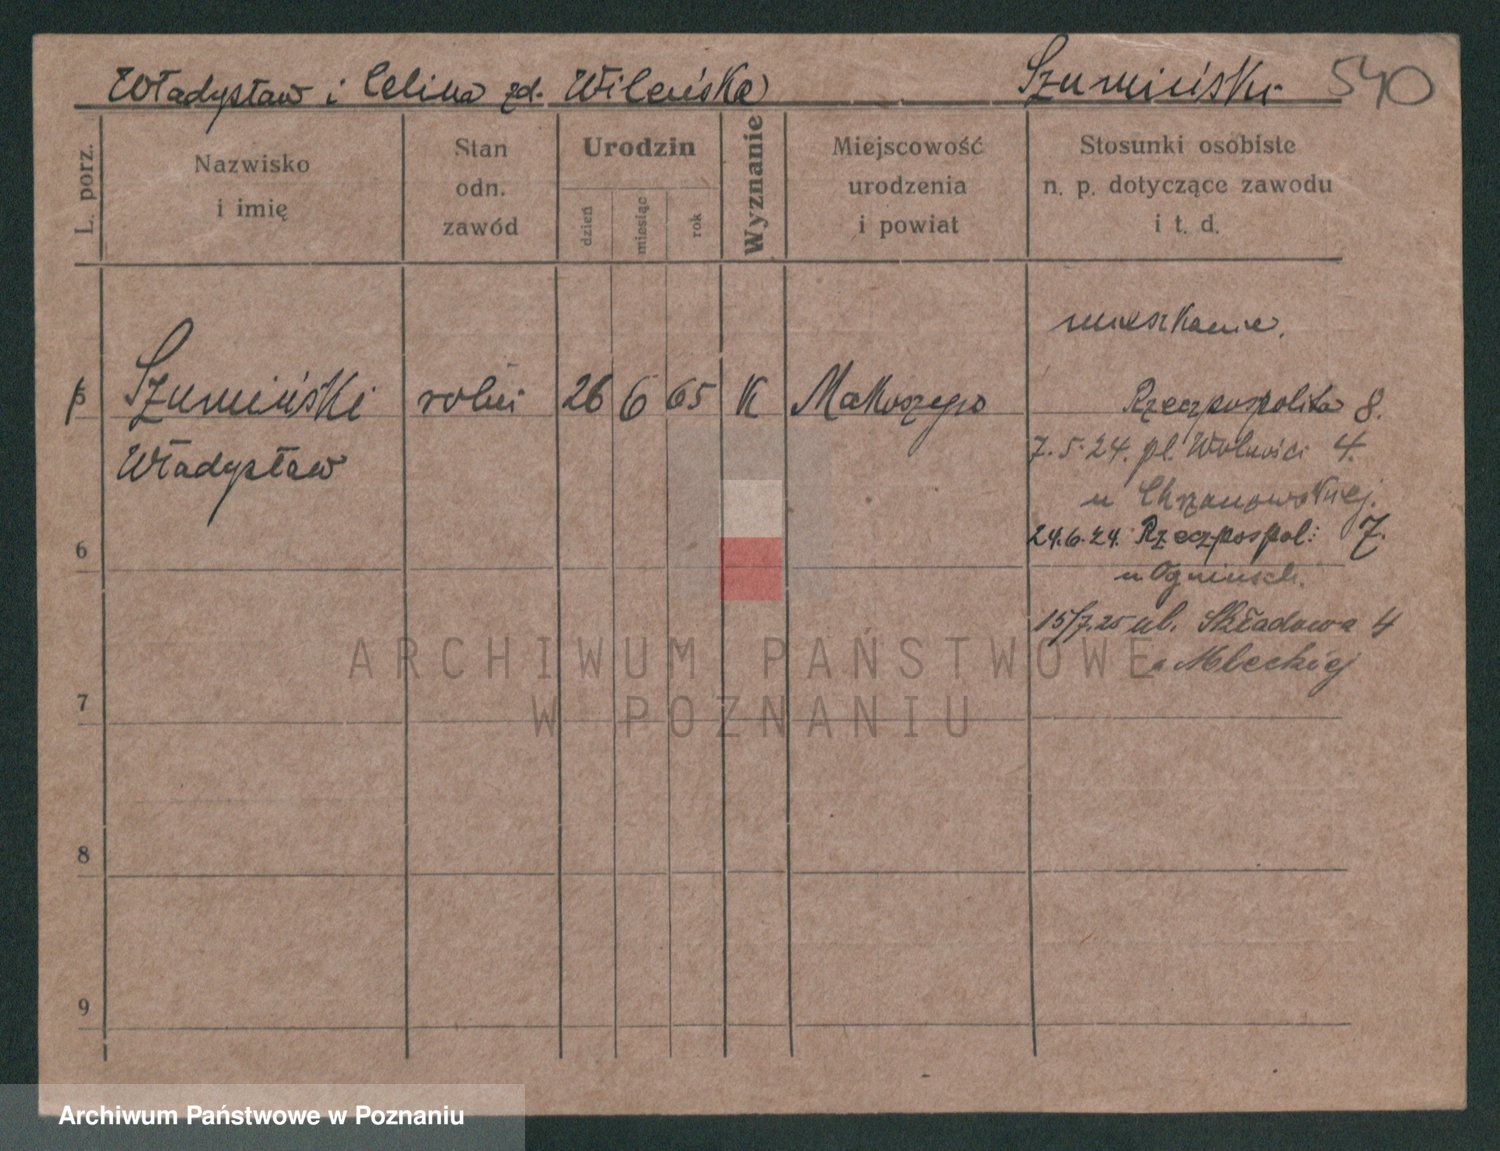 Władysław i Celina zd. Wileńska Szumiński 540
L. porz.
Nazwisko
i imię
Stan
odn.
zawód
Urodzin
dzień
miesiąc
rok
Wyznanie
Miejscowość
urodzenia
i powiat
Stosunki osobiste
n. p. dotyczące zawodu
i t. d.
mieszkanie.
Szumiński 26 6 65 K
Rzeczpospolita 8.
7.5.24. pl. Wolności 4.
Władysław
u Chrzanowskiej.
24.6.24. Rzeczpospol: 7.
6
15/7.25 ul. Składowa 4
ARCHIWUM PAŃSTWOWE
W POZNANIU
7
8
9
Archiwum Państwowe w Poznaniu